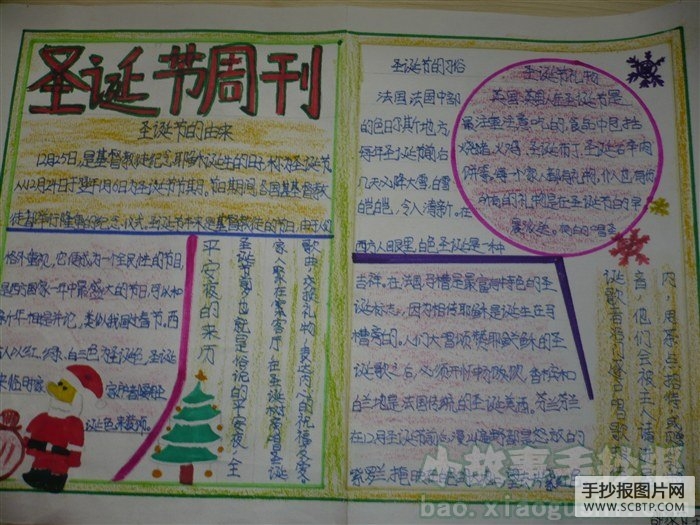 圣诞节周刊
圣诞节的由来
12月25日,是基督教徒纪念耶稣诞生的日子,称为圣诞节
从12月24日于翌年1月6日为圣诞节节期。节日期间,各国基督教
徒都举行隆重的纪念仪式。圣诞节本来是基督教徒的节日,由于人们
格外重视,它便成为一个全民性的节日,
是西方国家一年中最盛大的节日,可以和
新年相提并论,类似我国过春节。西
方人以红、绿、白三色为圣诞色,圣诞节
来临时家家户户都要用
圣诞色来装饰
平安夜的来历
圣诞前夕也就是俗话说的平安夜,全
家人聚在客厅,在圣诞树旁唱圣诞
歌曲,交换礼物,表达内心的祝福及爱
圣诞节的习俗
法国:法国中部
的色日尔斯地方
每年圣诞节前后
几天必降大雪,白雪
皑皑,令人清新。在
西方人眼里,白色圣诞是一种
吉祥。在法国,马槽是最富有特色的圣
诞标志,因为相传耶稣是诞生在马
槽旁的。人们大唱颂赞耶稣的圣
诞歌之后,必须开怀畅饮,香槟和
白兰地是法国传统的圣诞美酒。芬兰芬兰
在12月圣诞节前后,漫山
圣诞节礼物
英国:英国人在圣诞节是
最注重吃的,食品中包括
烧猪、火鸡、圣诞布丁、圣诞碎肉
饼等。每一个家人都有礼物,仆人也有份
所有的礼物是在圣诞节的早
晨派送。有的唱圣
诞歌者沿门逐户唱
音,他们会被主人请进屋
内,用茶点
小故事手抄报
bao.xiaogu
手抄报图片网
WWW.SCBTP.COM